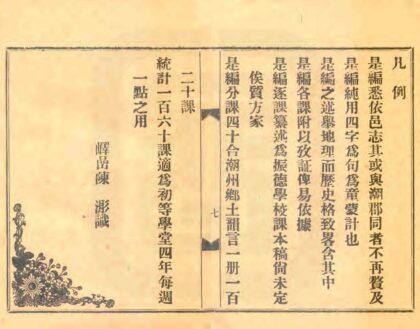 凡例
是編悉依邑志其或與潮郡同者不再贅及
是編純用四字為句為童蒙計也
是編之述舉地理而歷史格致畧含其中
是編各課附以攷証俾易依據
是編逐課纂述為振德學校課本稿尙未定
俟質方家
是編分課四十合潮州鄉土韻言一册一百
七
二十課
統計一百六十課適為初等學堂四年每週
一點之用
嶧嵒陳 澎識